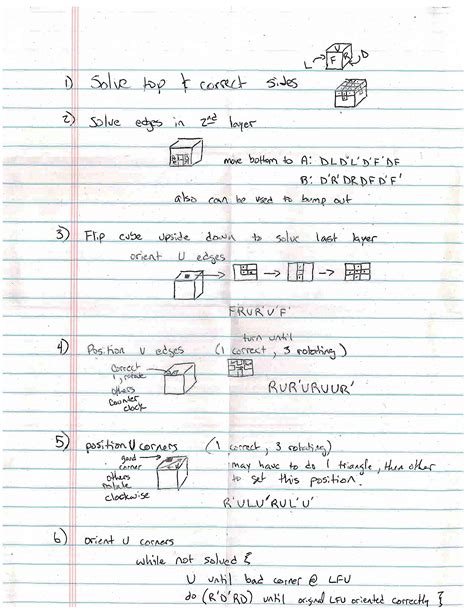 L U F R D
1) Solve top & correct sides
2) Solve edges in 2nd layer
move bottom to A: DLD'L'D'F'DF
B: D'R'DRDFD'F'
also can be used to bump out
3) Flip cube upside down to solve last layer
orient U edges
FRUR'U'F'
turn until
4) Position U edges (1 correct, 3 rotating)
correct
1, rotate
others
counter
clock
RUR'URUUR'
5) position U corners (1 correct, 3 rotating)
good
corner
others
rotate
clockwise
may have to do 1 triangle, then other
to set this position.
R'ULU'RUL'U'
6) orient U corners
while not solved {
U until bad corner @ LFU
do (R'D'RD) until original LFU oriented correctly }